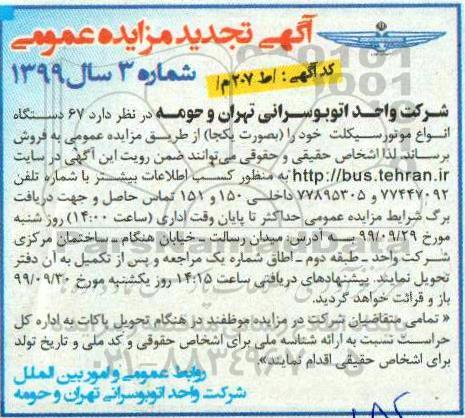 آگهی تجدید مزایده عمومی
شماره ۳ سال ۱۳۹۹
کد آگهی: /ط ۲۰۷ م/
شرکت واحد اتوبوسرانی تهران و حومه در نظر دارد ۶۷ دستگاه
انواع موتورسیکلت خود را (بصورت یکجا) از طریق مزایده عمومی به فروش
برساند. لذا اشخاص حقیقی و حقوقی می‌توانند ضمن رویت این آگهی در سایت
http://bus.tehran.ir به منظور کسب اطلاعات بیشتر با شماره تلفن
۷۷۴۴۷۰۹۲ و ۷۷۸۹۵۳۰۵ داخلی ۱۵۰ و ۱۵۱ تماس حاصل و جهت دریافت
برگ شرایط مزایده عمومی حداکثر تا پایان وقت اداری (ساعت ۱۴:۰۰) روز شنبه
مورخ ۹۹/۰۹/۲۹ به آدرس: میدان رسالت ـ خیابان هنگام ـ ساختمان مرکزی
شرکت واحد ـ طبقه دوم ـ اطاق شماره یک مراجعه و پس از تکمیل به آن دفتر
تحویل نمایند. پیشنهادهای دریافتی ساعت ۱۴:۱۵ روز یکشنبه مورخ ۹۹/۰۹/۳۰
باز و قرائت خواهد گردید.
« تمامی متقاضیان شرکت در مزایده موظفند در هنگام تحویل پاکات به اداره کل
حراست نسبت به ارائه شناسه ملی برای اشخاص حقوقی و کد ملی و تاریخ تولد
برای اشخاص حقیقی اقدام نمایند».
روابط عمومی و امور بین الملل
شرکت واحد اتوبوسرانی تهران و حومه